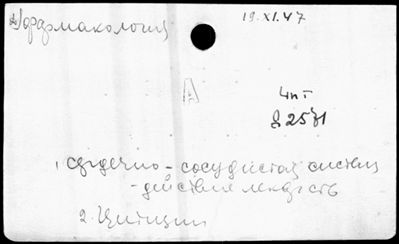 фармакология
19.XI.47
А
4пт
82571
1. сердечно-сосудистая система
- действия лекарств
2.